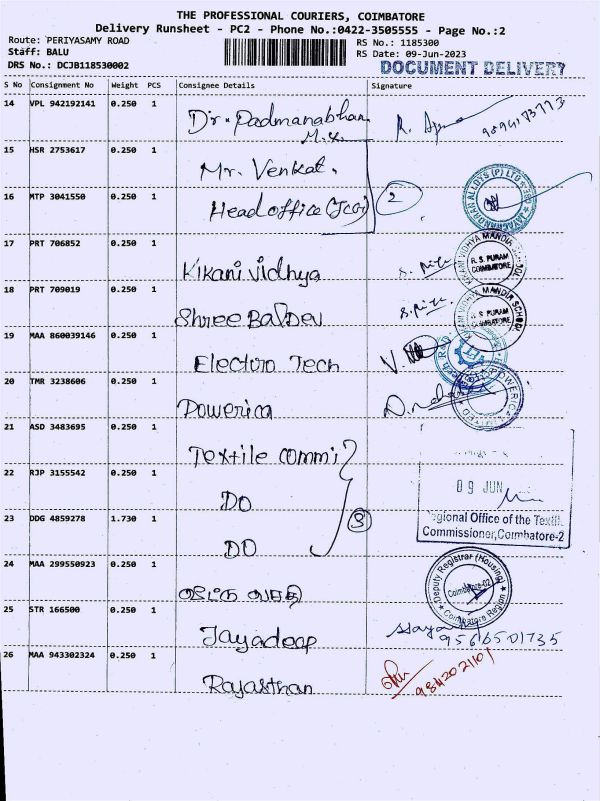 THE PROFESSIONAL COURIERS, COIMBATORE
Delivery Runsheet - PC2 - Phone No.:0422-3505555 - Page No.:2
Route: PERIYASAMY ROAD
RS No.: 1185300
Staff: BALU
RS Date: 09-Jun-2023
DRS No.: DCJB118530002
DOCUMENT DELIVERY
S No Consignment No Weight PCS Consignee Details Signature
14 VPL 942192141 0.250 1 Dr. Padmanabhan
15 HSR 2753617 0.250 1 Mr. Venkat.
16 MTP 3041550 0.250 1 Head office 2
JAYACHANDRAN ALLOYS (P) LTD
17 PRT 706852 0.250 1 Kikani Vidhya
KIKANI VIDHYA MANDIR SCHOOL
R. S. PURAM
COIMBATORE
18 PRT 709019 0.250 1 Shree BalDev
KIKANI VIDHYA MANDIR SCHOOL
R. S. PURAM
COIMBATORE
19 MAA 860039146 0.250 1 Electro Tech
20 TMR 3238606 0.250 1 Powerica
POWERICA LIMITED
21 ASD 3483695 0.250 1 Textile commi
22 RJP 3155542 0.250 1 DO
09 JUN
23 DDG 4859278 1.730 1 DO 3
gional Office of the Textil
Commissioner, Coimbatore-2
24 MAA 299550923 0.250 1
Deputy Registrar (Housing)
Coimbatore-02
Coimbatore Region
25 STR 166500 0.250 1 Jayadeep
9566501735
26 MAA 943302324 0.250 1 Rajasthan
9842021101